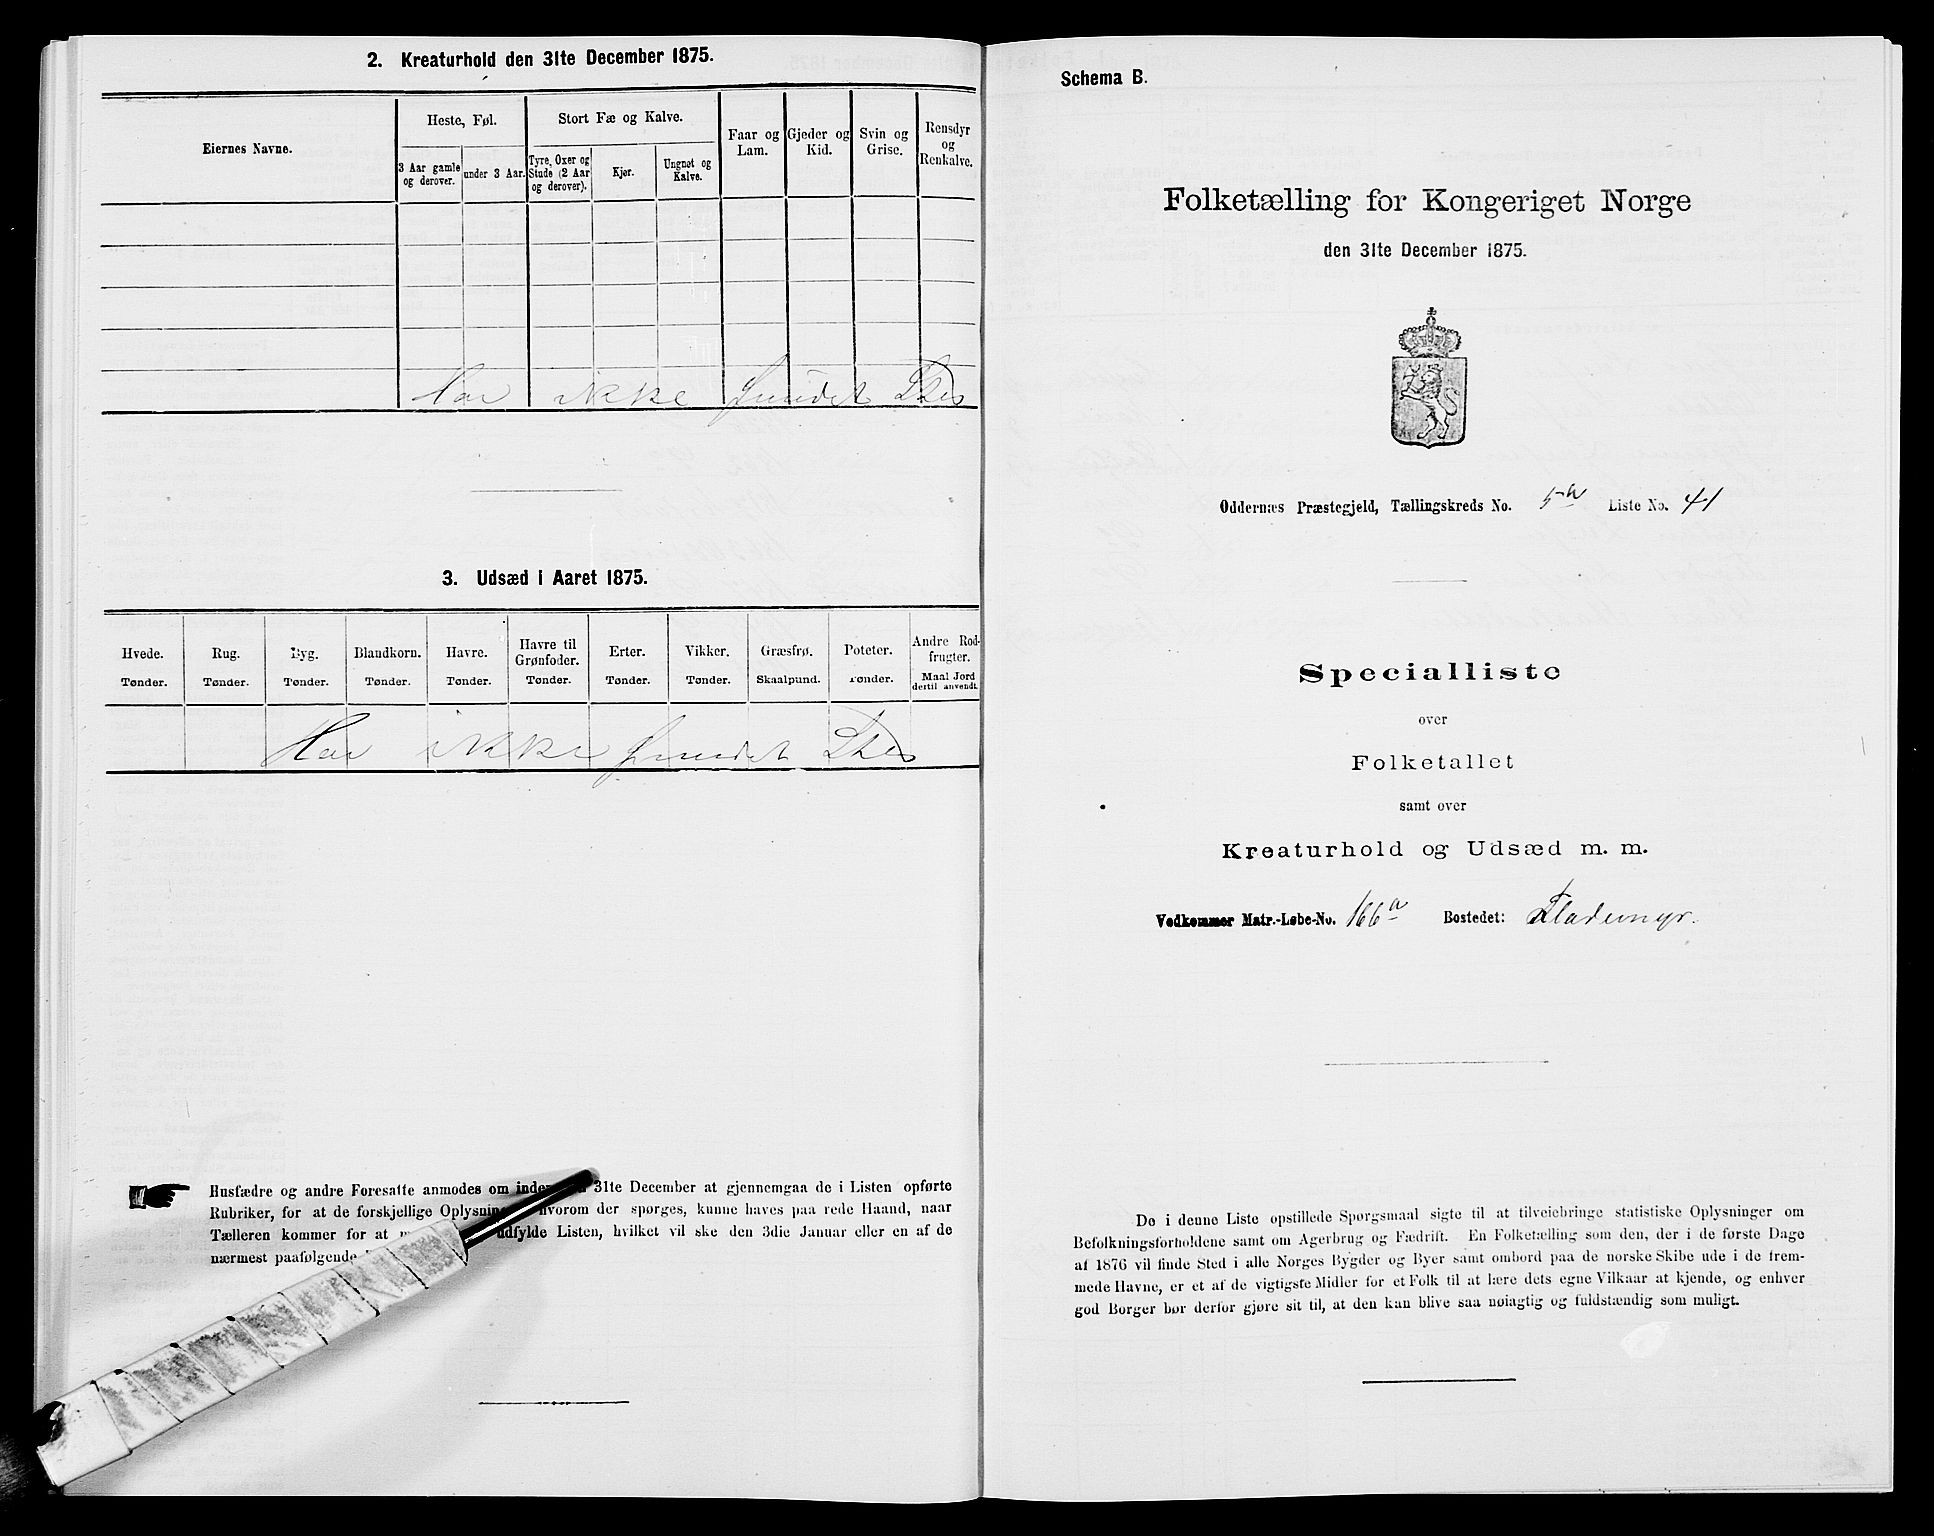 2. Kreaturhold den 31te December 1875.
Eiernes Navne.
Heste, Føl.
3 Aar gamle og derover.
under 3 Aar.
Stort Fæ og Kalve.
Tyre, Oxer og Stude (2 Aar og derover).
Kjør.
Ungnøt og Kalve.
Faar og Lam.
Gjeder og Kid.
Svin og Grise.
Rensdyr og Renkalve.
Har ikke fundet Sted
3. Udsæd i Aaret 1875.
Hvede. Tønder.
Rug. Tønder.
Byg. Tønder.
Blandkorn. Tønder.
Havre. Tønder.
Havre til Grønfoder. Tønder.
Erter. Tønder.
Vikker. Tønder.
Græsfrø. Skaalpund.
Poteter. Tønder.
Andre Rodfrugter. Maal Jord dertil anvendt.
Har ikke fundet Sted
Husfædre og andre Foresatte anmodes om inden 31te December at gjennemgaa de i Listen opførte
Rubriker, for at de forskjellige Oplysninger, hvorom der spørges, kunne haves paa rede Haand, naar
Tælleren kommer for at udfylde Listen, hvilket vil ske den 3die Januar eller en af de
nærmest paafølgende
Schema B.
Folketælling for Kongeriget Norge
den 31te December 1875.
Oddernæs Præstegjeld, Tællingskreds No. 5a Liste No. 41
Specialliste
over
Folketallet
samt over
Kreaturhold og Udsæd m. m.
Vedkommer Matr.-Løbe-No. 166a Bostedet: Flademyr.
De i denne Liste opstillede Spørgsmaal sigte til at tilveiebringe statistiske Oplysninger om
Befolkningsforholdene samt om Agerbrug og Fædrift. En Folketælling som den, der i de første Dage
af 1876 vil finde Sted i alle Norges Bygder og Byer samt ombord paa de norske Skibe ude i de frem-
mede Havne, er et af de vigtigste Midler for et Folk til at lære dets egne Vilkaar at kjende, og enhver
god Borger bør derfor gjøre sit til, at den kan blive saa nøiagtig og fuldstændig som muligt.